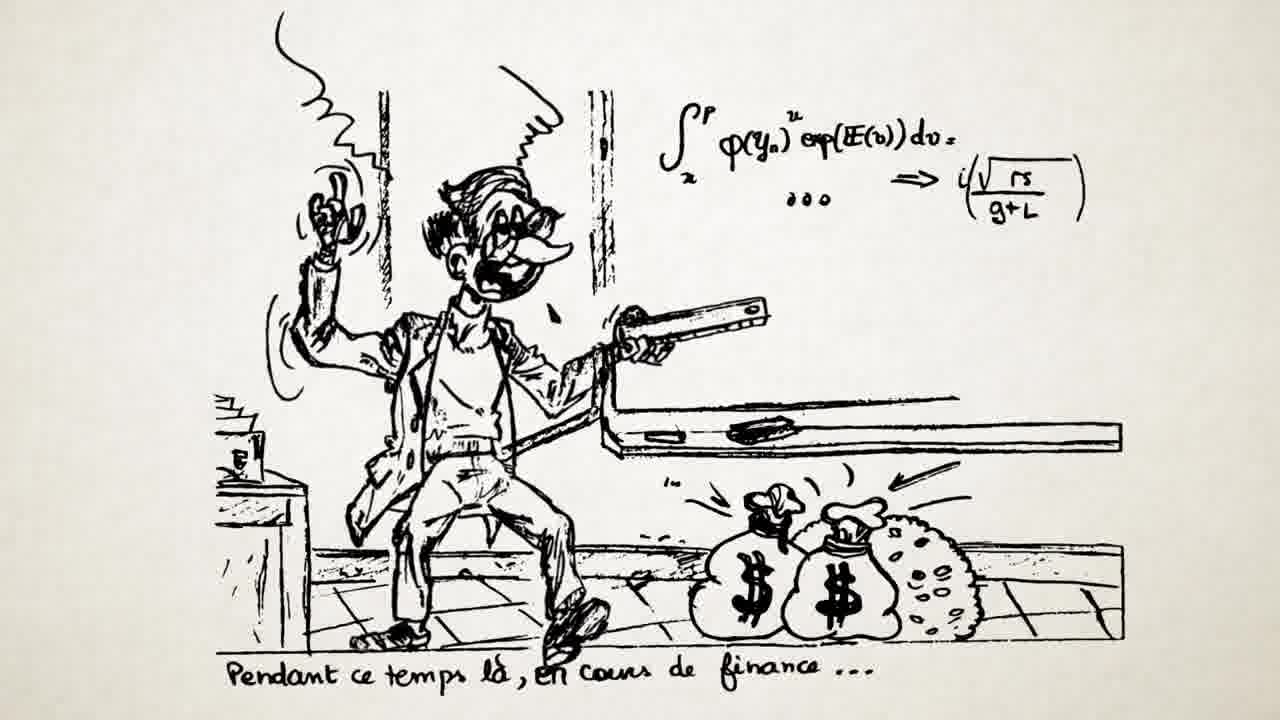 ∫ₓᵖ φ(yₙ)ᵘ exp(𝔼(v)) dv =
... ⇒ i(√rs / g+L)
$ $
Pendant ce temps là, en cours de finance ...